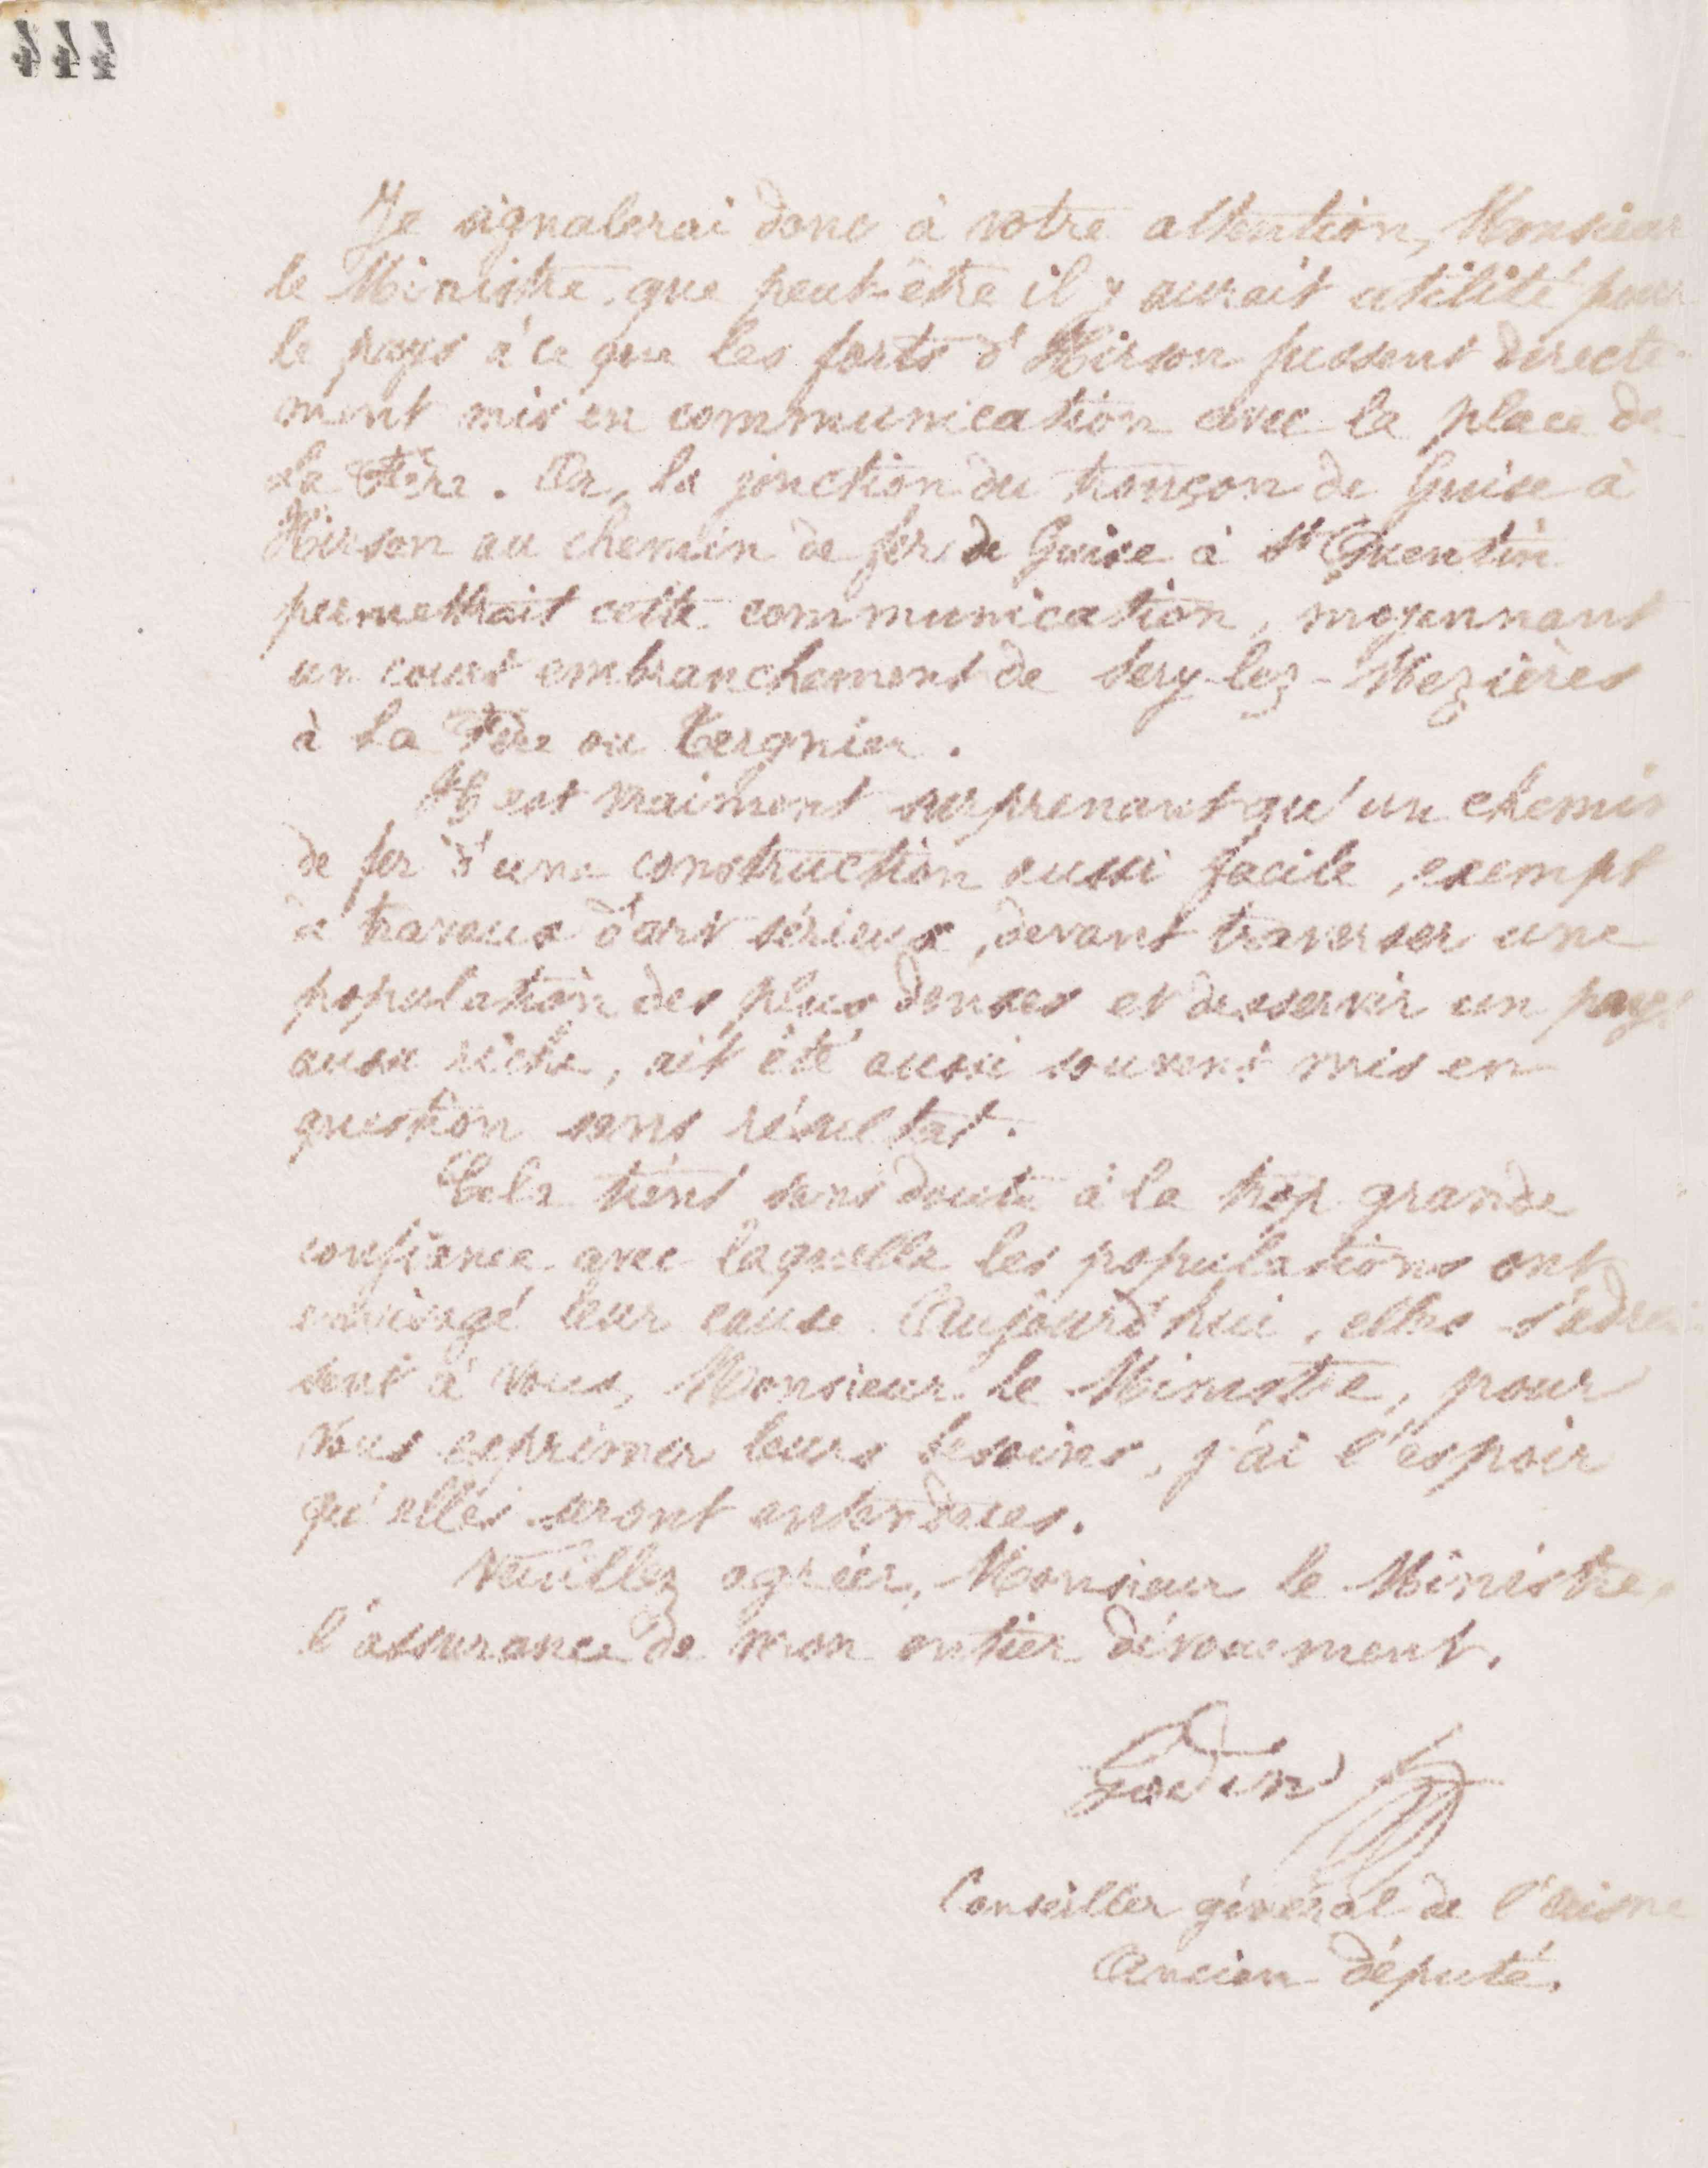 444
Je signalerai donc à votre attention, Monsieur
le Ministre, que peut-être il y aurait utilité pour
le pays à ce que les forts d'Hirson fussent directe-
ment mis en communication avec la place de
La Fère. Or, la jonction du tronçon de Guise à
Hirson au chemin de fer de Guise à St Quentin
permettrait cette communication, moyennant
un court embranchement de Sery-lez-Mezières
à La Fère ou Tergnier.
Il est vraiment surprenant qu'un chemin
de fer d'une construction aussi facile, exempt
de travaux d'art sérieux, devant traverser une
population des plus denses et desservir un pays
aussi riche, ait été aussi souvent mis en
question sans résultat.
Cela tient sans doute à la trop grande
confiance avec laquelle les populations ont
envisagé leur cause. Aujourd'hui, elles s'adres-
sent à vous, Monsieur le Ministre, pour
vous exprimer leurs besoins, j'ai l'espoir
qu'elles seront entendues.
Veuillez agréer, Monsieur le Ministre,
l'assurance de mon entier dévouement.
Godin
Conseiller général de l'Aisne
Ancien député.